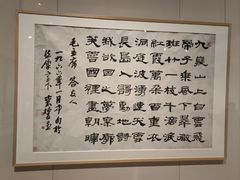 九嶷山上白雲飛
帝子乘風下翠微
斑竹一枝千滴淚
紅霞萬朵百重衣
洞庭波涌連天雪
長島人歌動地詩
我欲因之夢寥廓
芙蓉國裡盡朝暉
毛主席 答友人
一九六六年一月中旬於